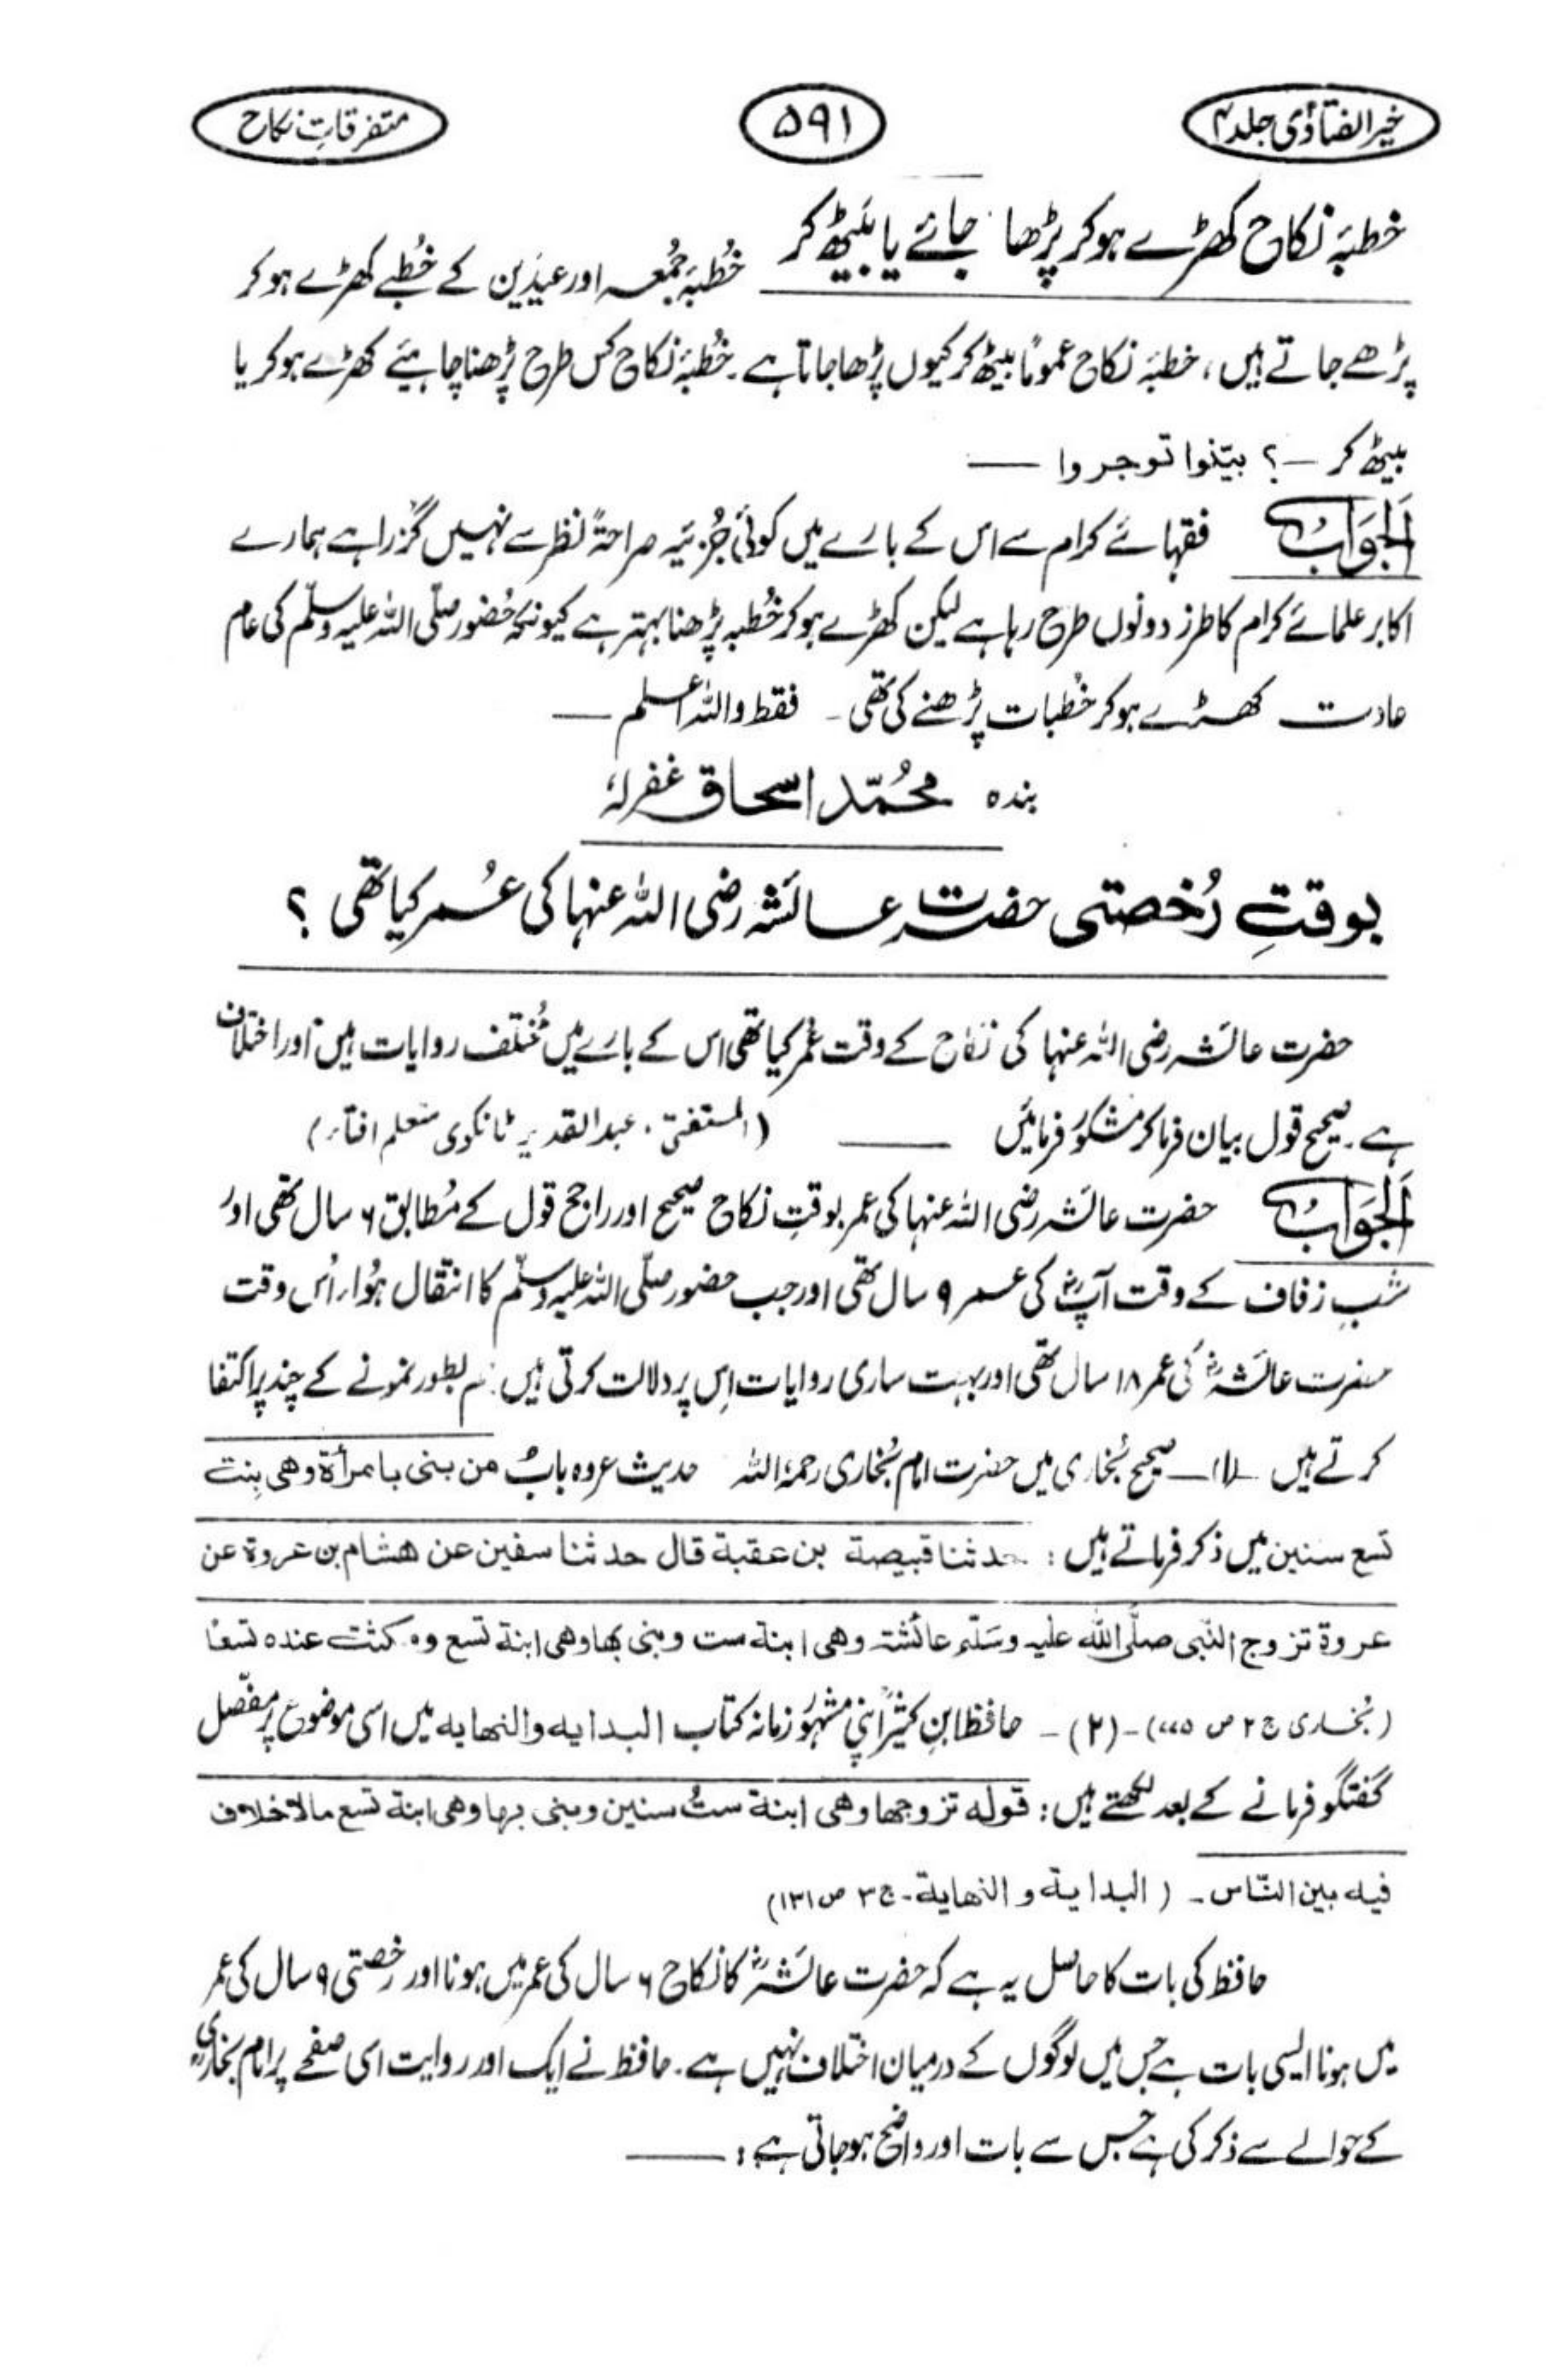 خیر الفتاوٰی جلد ۴
۵۹۱
متفرقاتِ نکاح
خطبۂ نکاح کھڑے ہوکر پڑھا جائے یا بیٹھ کر
خُطبۂ جُمعہ اور عیدَین کے خُطبے کھڑے ہوکر
پڑھے جاتے ہیں ، خطبۂ نکاح عمومًا بیٹھ کر کیوں پڑھا جاتا ہے ۔ خُطبۂ نکاح کس طرح پڑھنا چاہیئے کھڑے ہوکر یا
بیٹھ کر —؟ بیّنوا توجروا —
اَلجَوَابُ فقہائے کرام سے اس کے بارے میں کوئی جُزئیہ صراحۃً نظر سے نہیں گزرا ہے ہمارے
اکابر علمائے کرام کا طرز دونوں طرح رہا ہے لیکن کھڑے ہوکر خُطبہ پڑھنا بہتر ہے کیونکہ حُضور صلّی اللہ علیہ وسلّم کی عام
عادت کھڑے ہوکر خُطبات پڑھنے کی تھی ۔ فقط واللہ اعلم —
بندہ محُمّد اسحاق غفرلہٗ
بوقتِ رُخصتی حضرت عائشہ رضی اللہ عنہا کی عُمر کیا تھی ؟
حضرت عائشہ رضی اللہ عنہا کی نکاح کے وقت عُمر کیا تھی اس کے بارے میں مُختلف روایات ہیں اور اختلاف
ہے ۔ صحیح قول بیان فرماکر مشکور فرمائیں —— (المستفتی ، عبدالقدیر ٹانکوی متعلم افتاء)
اَلجَوَابُ حضرت عائشہ رضی اللہ عنہا کی عمر بوقتِ نکاح صحیح اور راجح قول کے مُطابق ۶ سال تھی اور
شبِ زفاف کے وقت آپؓ کی عمر ۹ سال تھی اور جب حضور صلّی اللہ علیہ وسلّم کا انتقال ہُوا، اُس وقت
حضرت عائشہؓ کی عمر ۱۸ سال تھی اور بہت ساری روایات اِس پر دلالت کرتی ہیں ہم بطور نمونے کے چند پر اکتفا
کرتے ہیں (۱) — صحیح بُخاری میں حضرت امام بُخاری رحمہُ اللہ حدیث عروہ بابُ من بنی بامرأة وهی بِنت
تسع سنین میں ذکر فرماتے ہیں : حدثنا قبیصة بن عقبة قال حدثنا سفین عن هشام بن عروة عن
عروة تزوج النّبی صلّی اللہ علیه وسَلّم عائشة وهی ابنة ست وبنی بها وهی ابنة تسع و مکثت عنده تسعًا
(بُخاری ج ۲ ص ۷۷۵) — (۲) — حافظ ابنِ کثیرؒ اپنی مشہُور زمانہ کتاب البدایه والنهایه میں اسی موضوع پر مفصّل
گفتگو فرمانے کے بعد لکھتے ہیں : قوله تزوجها وهی ابنة ستُ سنین وبنی بها وهی ابنة تسع مالا خلاف
فیه بین النّاس ۔ (البدایة و النهایة ۔ ج ۳ ص ۱۳۱)
حافظ کی بات کا حاصل یہ ہے کہ حضرت عائشہؓ کا نکاح ۶ سال کی عمر میں ہونا اور رخصتی ۹ سال کی عمر
میں ہونا ایسی بات ہے جس میں لوگوں کے درمیان اختلاف نہیں ہے ۔ حافظ نے ایک اور روایت اسی صفحے پر امام بخاریؒ
کے حوالے سے ذکر کی ہے جس سے بات اور واضح ہوجاتی ہے : ——